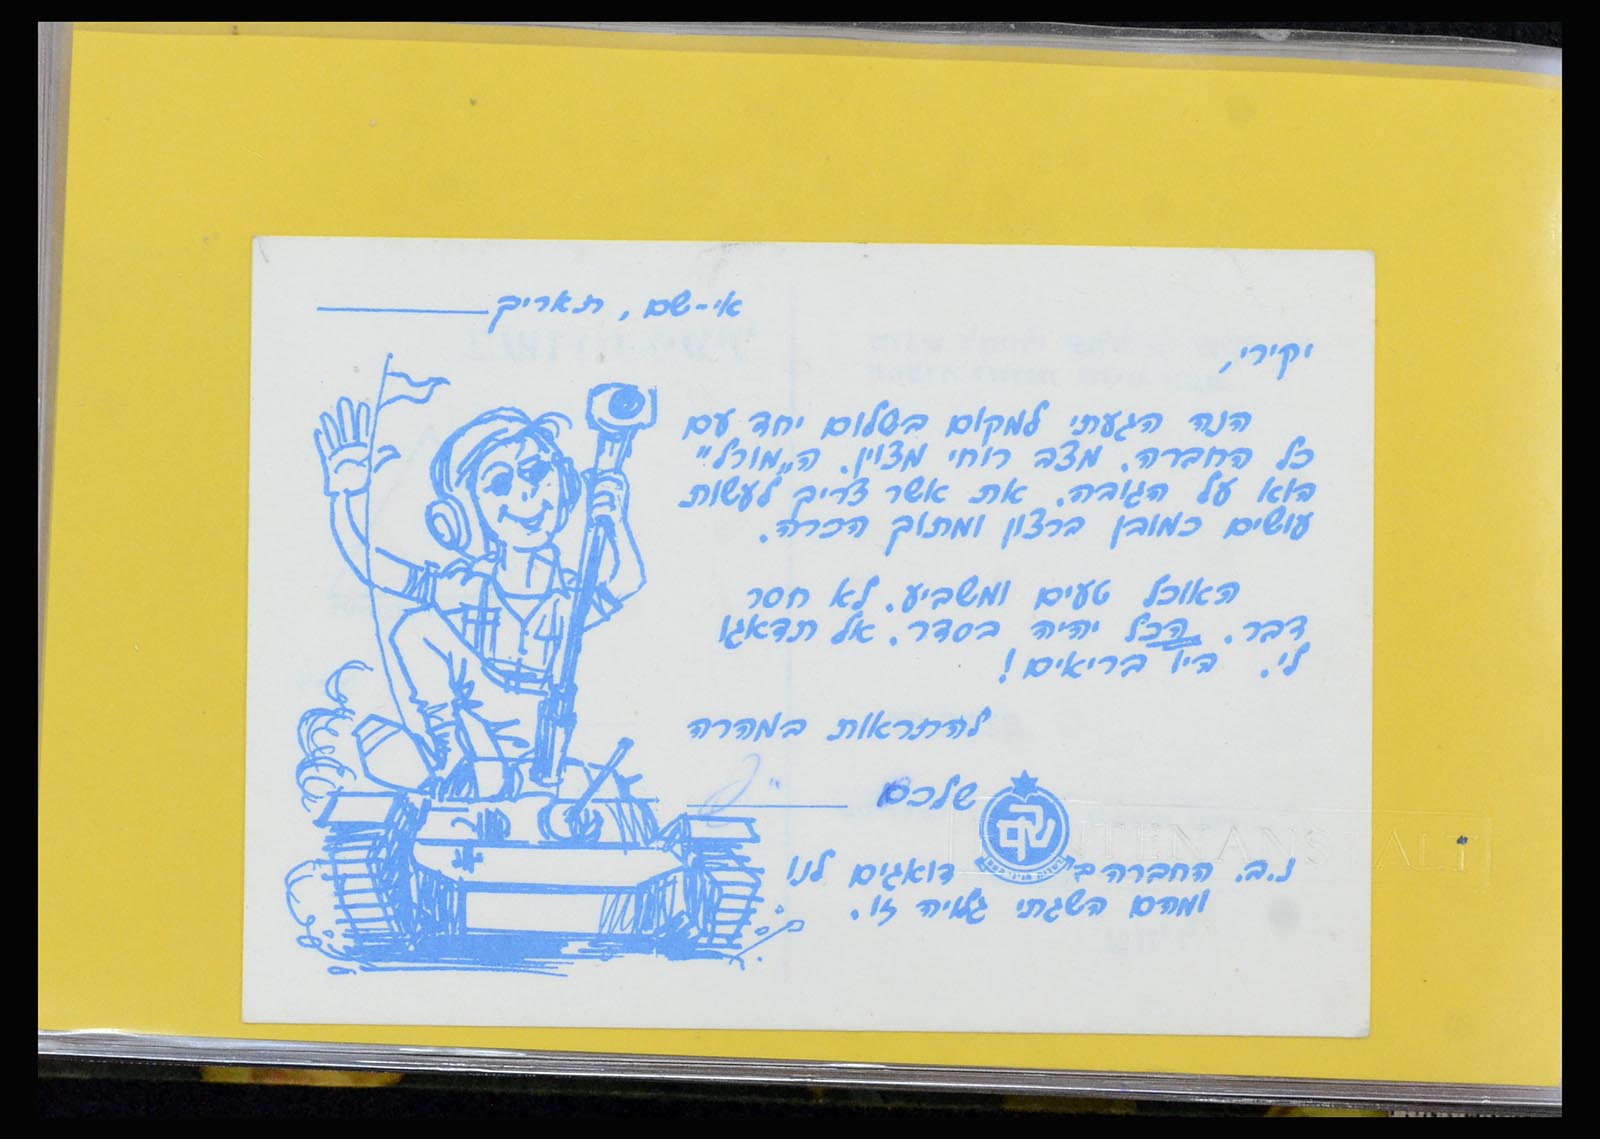 אי-שם, תאריך
יקירי,
הנה הגעתי למקום בשלום יחד עם
כל החברה. מצב רוחי מצוין. ה"מורל"
הוא על הגובה. את אשר צריך לעשות
עושים כמובן ברצון ומתוך הכרה.
האוכל טעים ומשביע. לא חסר
דבר. הכל יהיה בסדר. אל תדאגו
לי. היו בריאים!
להתראות במהרה
שלכם
שקם
נ.ב. החברה ב דואגים לנו
ומהם השגתי גלויה זו.